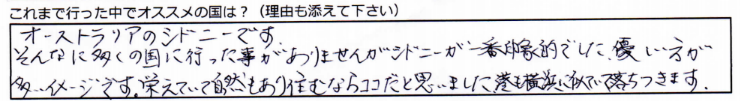 これまで行った中でオススメの国は？（理由も添えて下さい）
オーストラリアのシドニーです。
そんなに多くの国に行った事がありませんがシドニーが一番印象的でした。優しい方が
多いイメージです。栄えていて自然もあり住むならココだと思いました。港も横浜に似ていて落ちつきます。